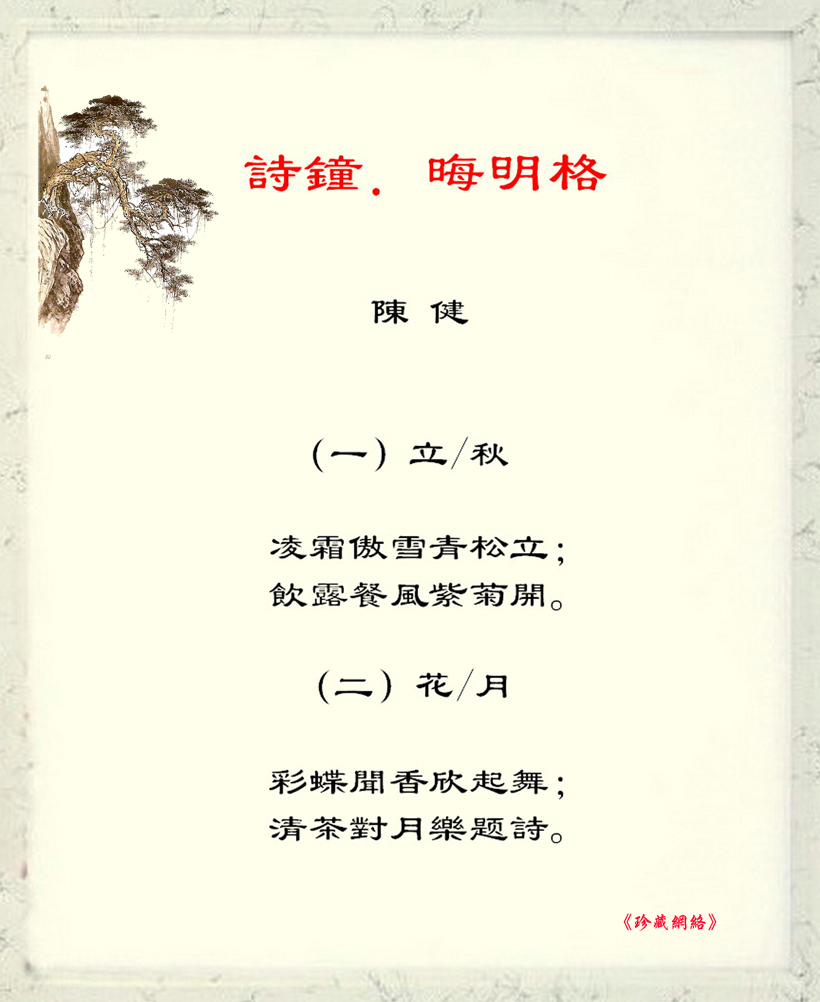 詩鐘．晦明格
陳 健
（一）立/秋
凌霜傲雪青松立；
飲露餐風紫菊開。
（二）花/月
彩蝶聞香欣起舞；
清茶對月樂题詩。
《珍藏網絡》